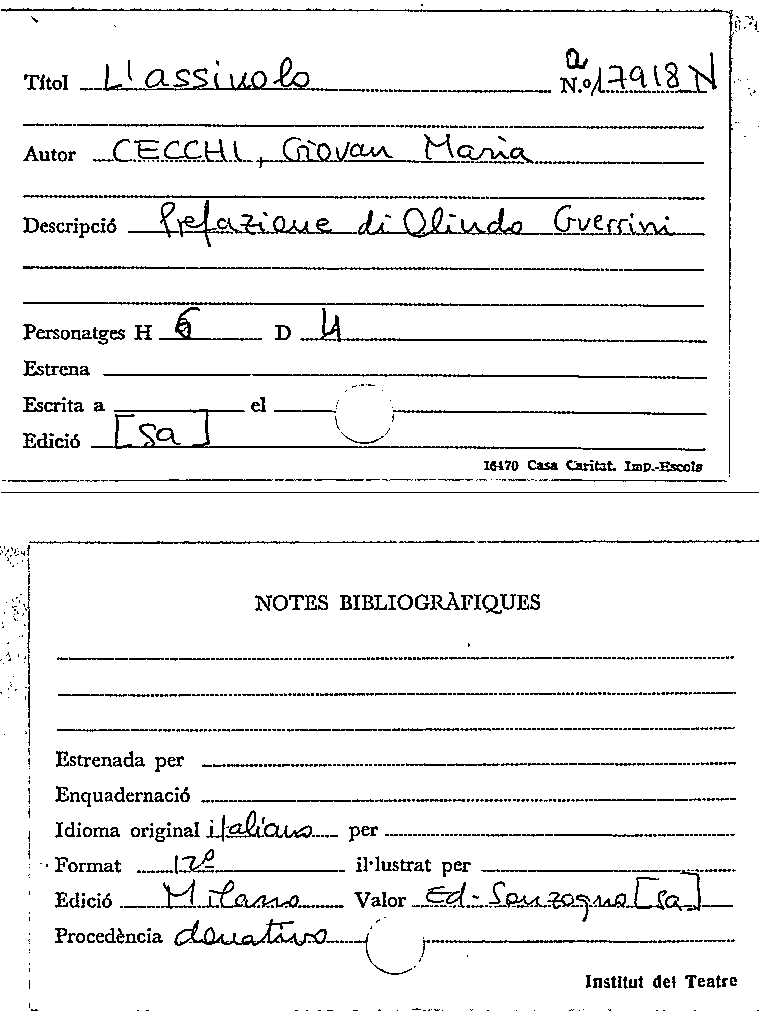 Títol L'assivolo a N.º 17918 N
Autor CECCHI, Giovan Maria
Descripció Prefazione di Olindo Guerrini
Personatges H 6 D 4
Estrena
Escrita a el
Edició [sa]
16470 Casa Caritat. Imp.-Escols
NOTES BIBLIOGRÀFIQUES
Estrenada per
Enquadernació
Idioma original italiano per
Format 12º il·lustrat per
Edició Milano Valor Ed- Sonzogno [sa]
Procedència donativo
Institut del Teatre